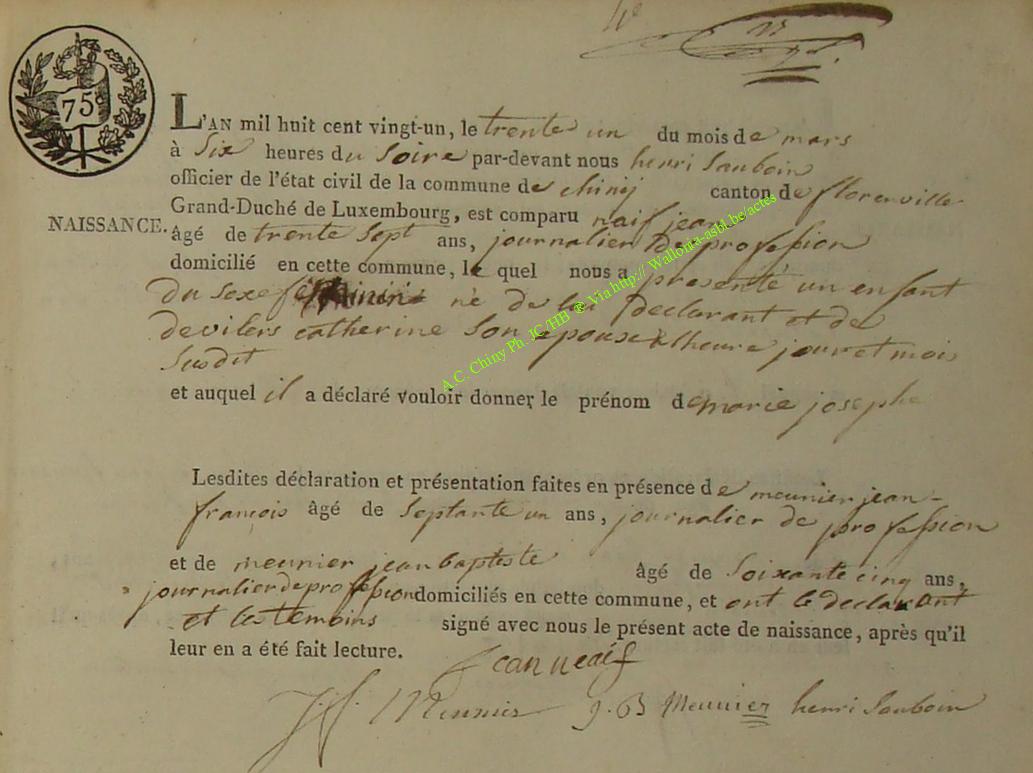 75
L'AN mil huit cent vingt-un, le trente un du mois de mars
à Six heures du Soire par-devant nous henri Sauboin
officier de l'état civil de la commune de chiny canton de florenville
Grand-Duché de Luxembourg, est comparu naif jean
NAISSANCE.
âgé de trente Sept ans, journalier De profession
domicilié en cette commune, le quel nous a présenté un enfant
du sexe né de lui déclarant et de
devilers catherine Son épouse a lheure jour et mois
Susdit
et auquel il a déclaré vouloir donner le prénom de marie josephe
Lesdites déclaration et présentation faites en présence de meunier jean-
françois âgé de Septante un ans, journalier de profession
et de meunier jean baptiste âgé de Soixante cinq ans,
journalier de profession domiciliés en cette commune, et ont le declarant
et les temoins signé avec nous le présent acte de naissance, après qu'il
leur en a été fait lecture.
Jean neaif
J. f. Meunier J. B Meunier henri Sauboin
A C. Chiny Ph. JC/HB ® Via http:// Wallonia-asbl.be/actes